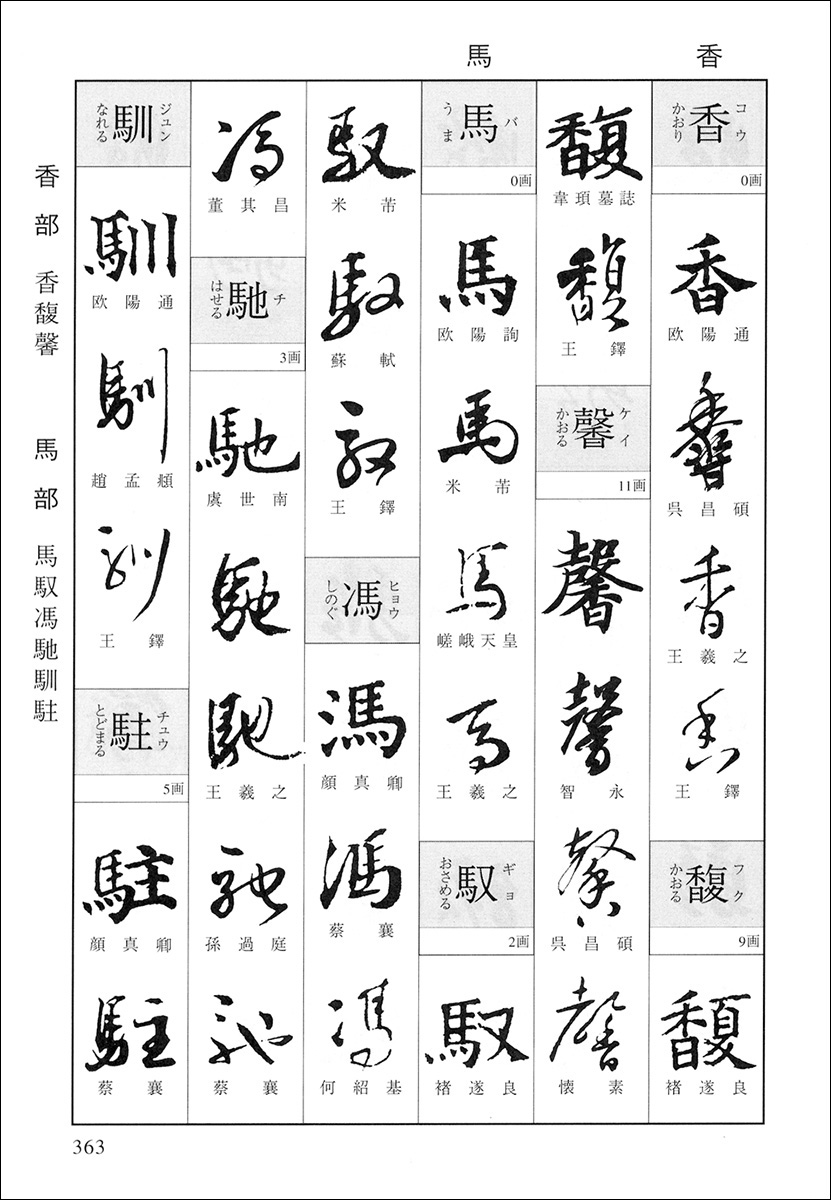 香
馬
コウ
香
かおり
0画
香
欧陽通
香
呉昌碩
香
王羲之
香
王鐸
フク
馥
かおる
9画
馥
褚遂良
馥
韋頊墓誌
馥
王鐸
ケイ
馨
かおる
11画
馨
馨
智永
馨
呉昌碩
馨
懐素
バ
馬
うま
0画
馬
欧陽詢
馬
米芾
馬
嵯峨天皇
馬
王羲之
ギョ
馭
おさめる
2画
馭
褚遂良
馭
米芾
馭
蘇軾
馭
王鐸
ヒョウ
馮
しのぐ
馮
顔真卿
馮
蔡襄
馮
何紹基
馮
董其昌
チ
馳
はせる
3画
馳
虞世南
馳
馳
王羲之
馳
孫過庭
馳
蔡襄
ジュン
馴
なれる
馴
欧陽通
馴
趙孟頫
馴
王鐸
チュウ
駐
とどまる
5画
駐
顔真卿
駐
蔡襄
香部 香馥馨 馬部 馬馭馮馳馴駐
363